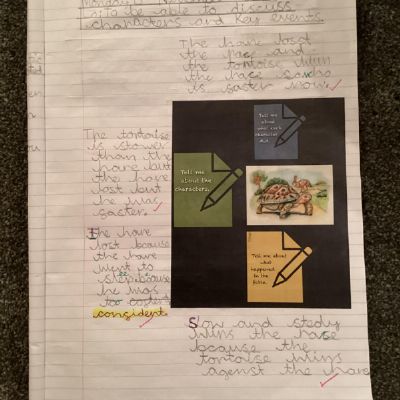 Monday
to be able to discuss
characters and key events.
The hare lost
the race and
the tortoise win
the race so who
is faster now.
The tortoise
is slower
than the
hare but
the hare
lost but
he was
faster.
The hare
lost because
the hare
went to
sleep because
he was
to
congident.
Tell me
about
what each
character
did.
Tell me
about the
characters.
Tell me about
what
happened
in the
fable.
Slow and stedy
wins the race
because the
tortoise wins
against the hare